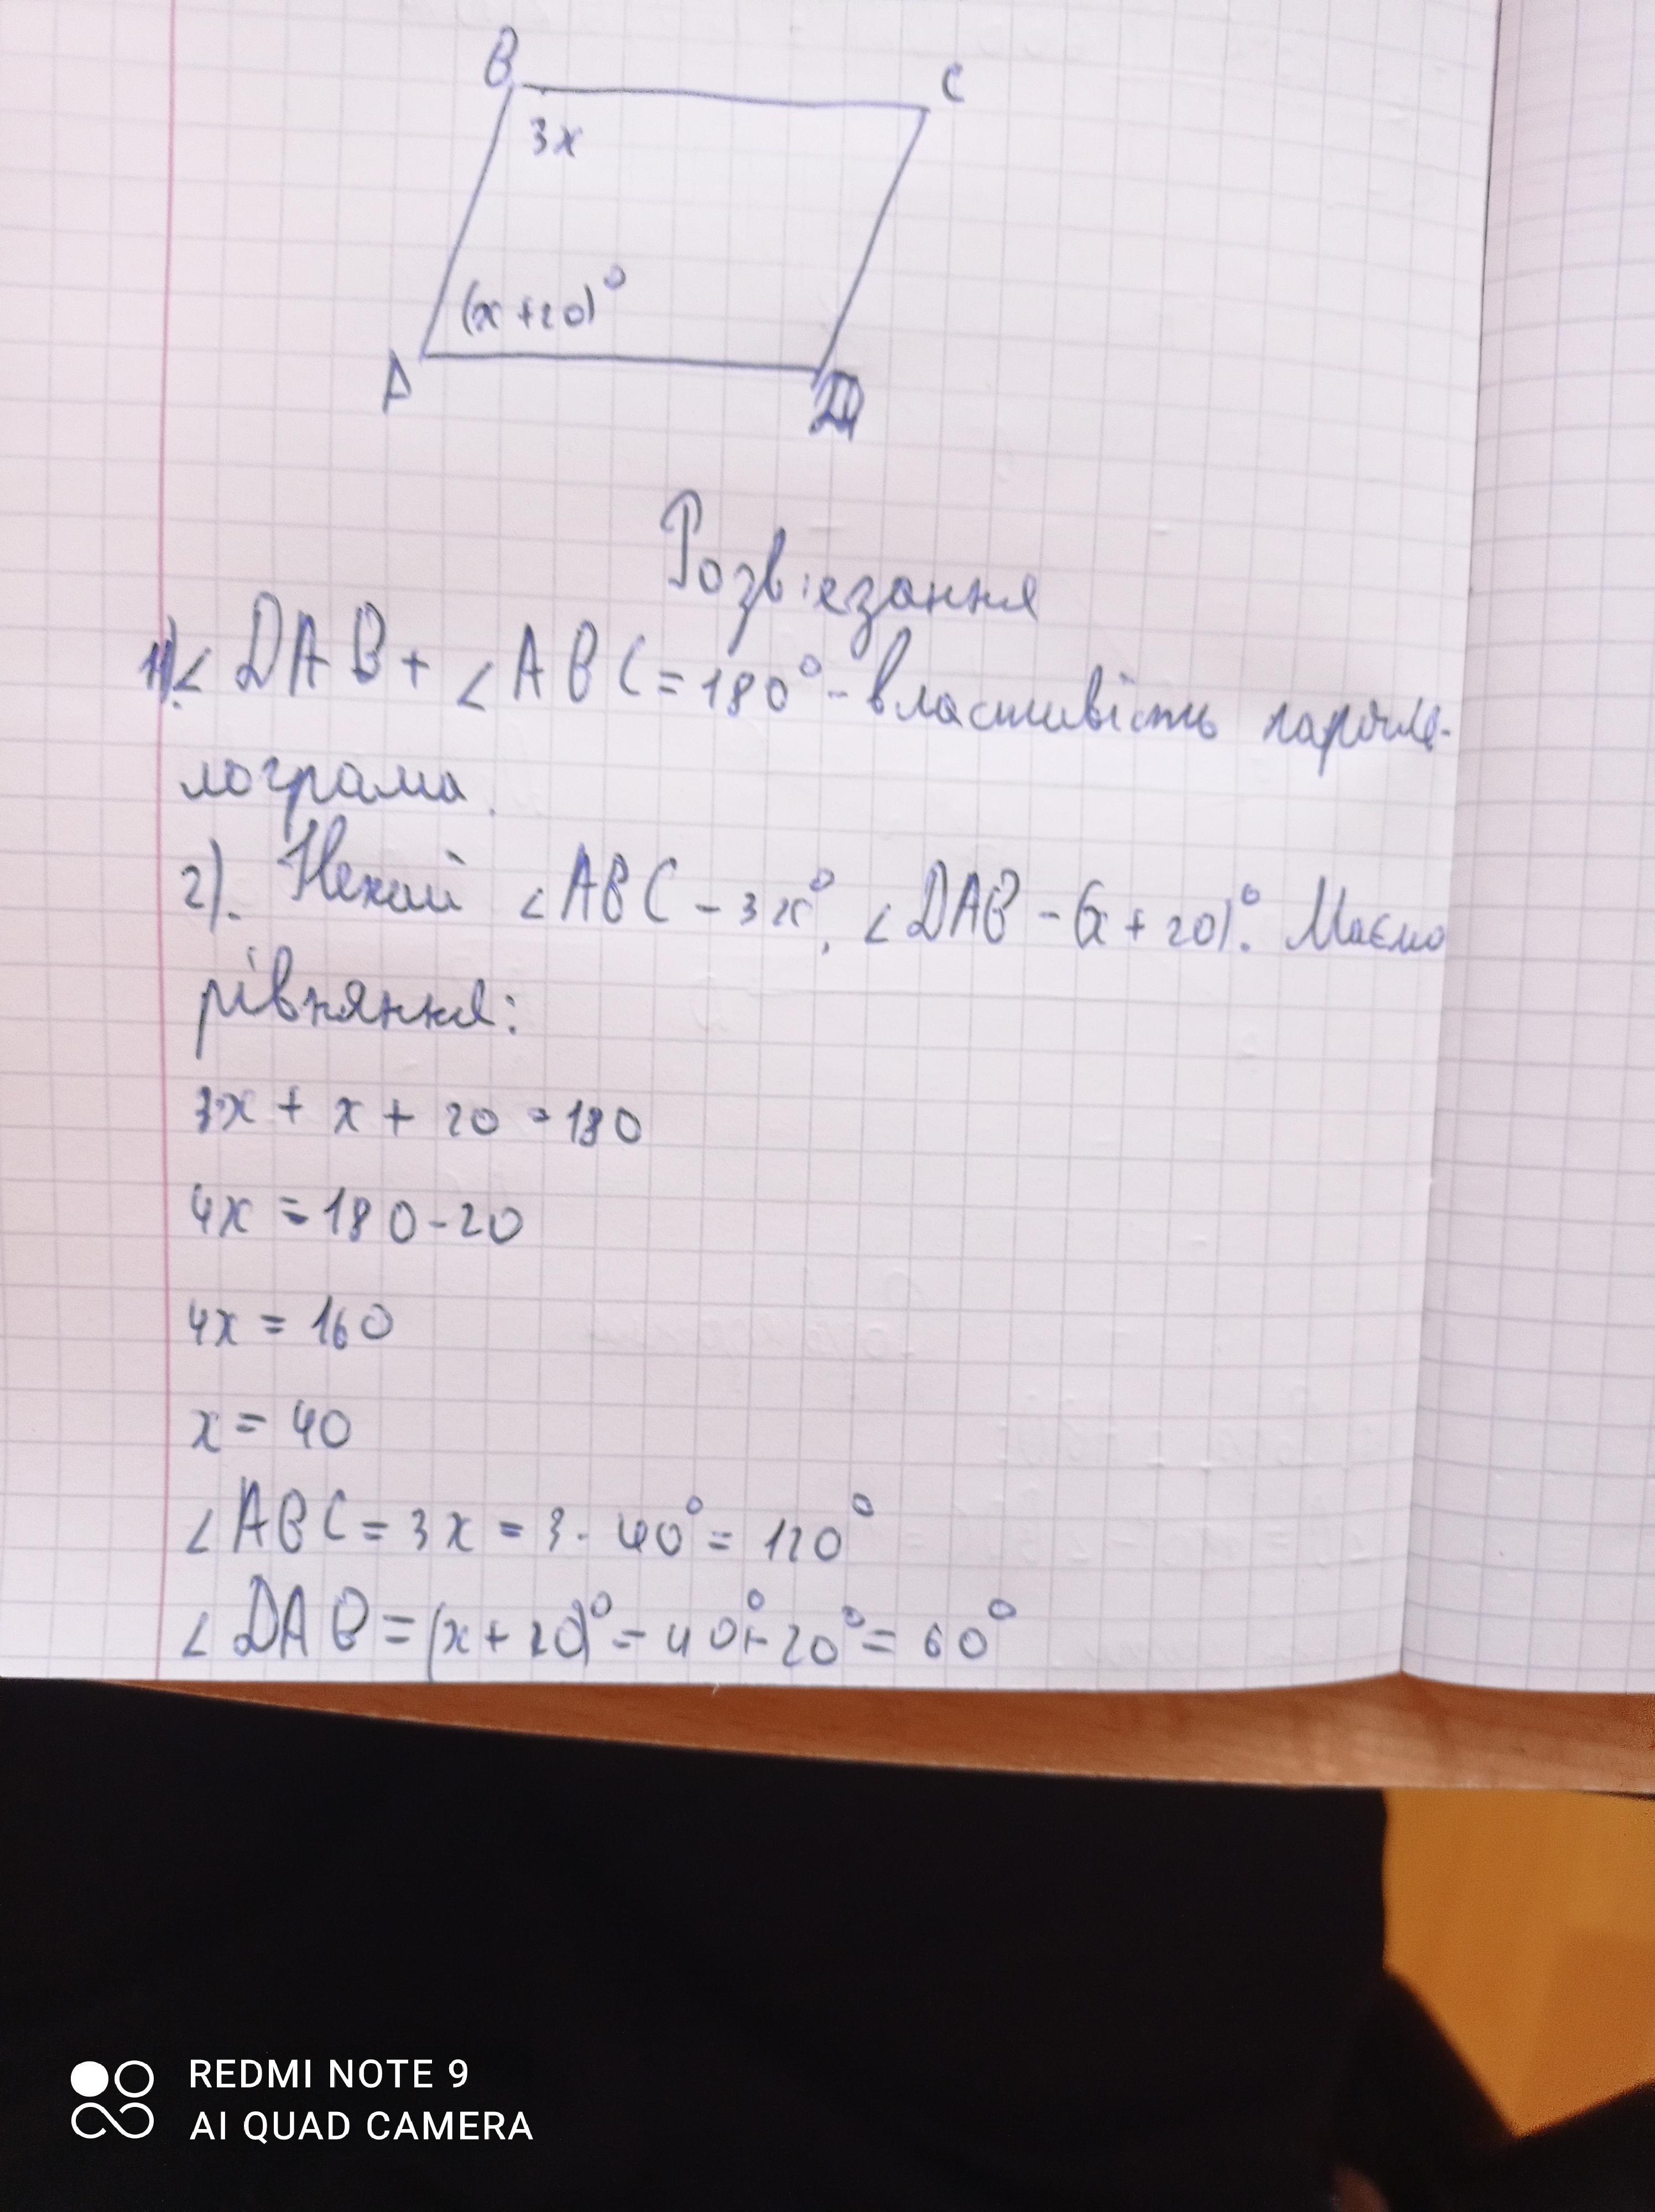 B
C
3x
(x+20)°
A
D
Розвʼєзання
1). ∠DAB + ∠ABC = 180° - властивість парале-
лограма.
2). Нехай ∠ABC - 3x°, ∠DAB - (x + 20)°. Маємо
рівняння:
3x + x + 20 = 180
4x = 180 - 20
4x = 160
x = 40
∠ABC = 3x = 3 · 40° = 120°
∠DAB = (x + 20)° = 40° + 20° = 60°
REDMI NOTE 9
AI QUAD CAMERA